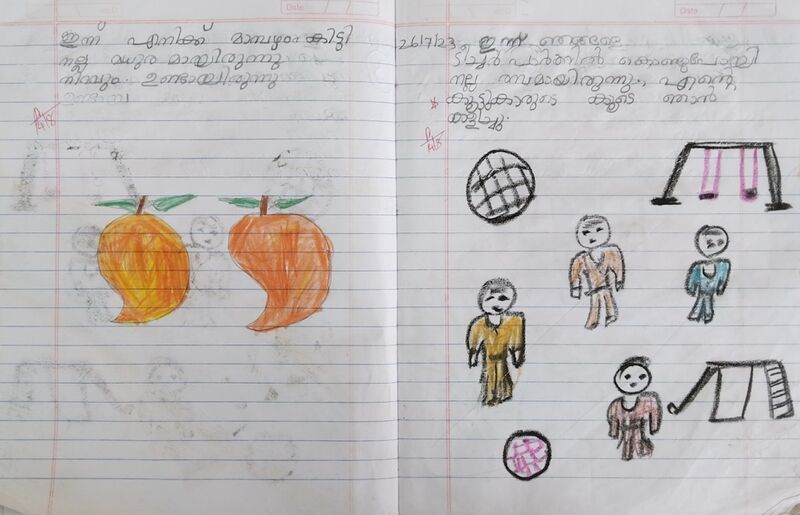 Date
ഇന്ന് എനിക്ക് മാമ്പഴം കിട്ടി
നല്ല മധുരമായിരുന്നു
നിറവും ഉണ്ടായിരുന്നു
Date
26/7/23 ഇന്ന് ഞങ്ങളെ
ടീച്ചർ പാർക്കിൽ കൊണ്ടുപോയി
നല്ല രസമായിരുന്നു. എന്റെ
കൂട്ടുകാരുടെ കൂടെ ഞാൻ
കളിച്ചു.